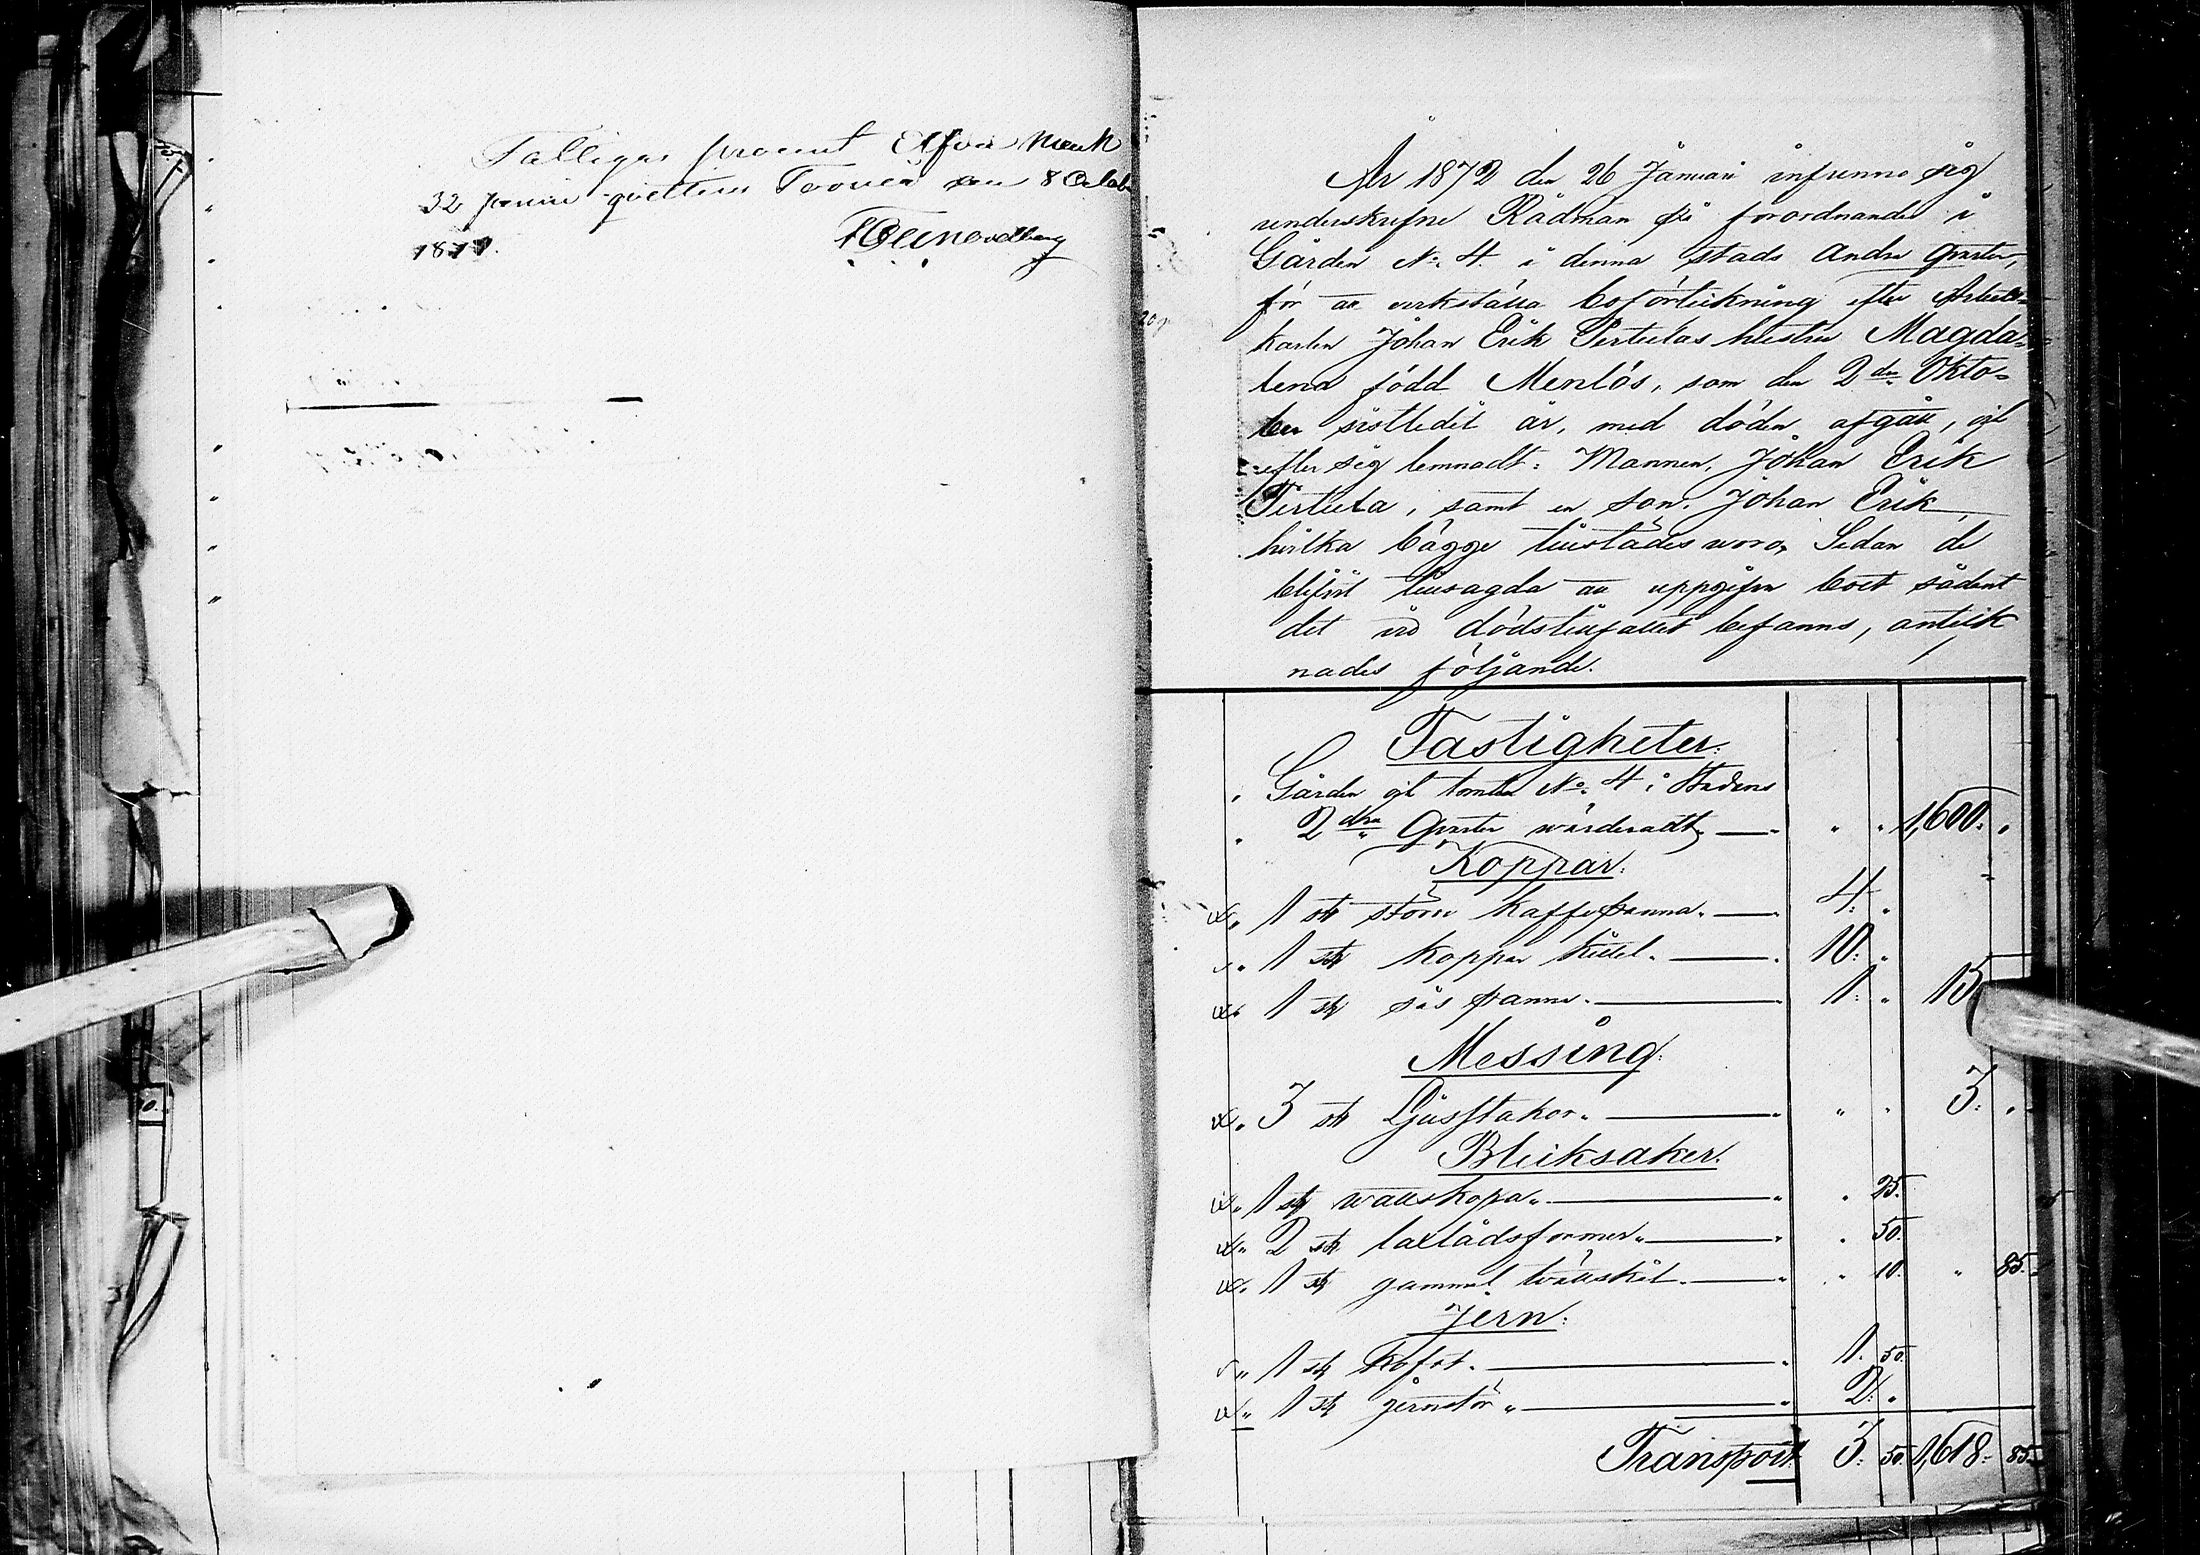 Fattigas procent Elfva Mark
32 penni qvitteras Torneå den 8 Octob
1871.
År 1872 den 26 Januari infunno sig
underskrifne Rådman på förordnande i
Gården No 4 i denna stads andra qvarter,
för att verkställa boförteckning efter Arbets-
karlen Johan Erik Pertulas hustru Magda-
lena född Menlös, som den 2dra Okto-
ber sistledet år, med döden afgått, och
efter sig lemnadt: Mannen, Johan Erik
Pertula, samt en son, Johan Erik,
hvilka bägge tillstädes woro. Sedan de
blifvit tillsagda att uppgifva boet sådant
det vid dödstillfallet befanns, anteck
nades följande.
Fastigheter:
Gården och tomten No 4 i Stadens
2dra Qvarter wärderadt 1,600.
Koppar:
1 st större Kaffepanna 4.
1 st Koppar kittel 10.
1 st sås panna 1. 15
Messing:
3 st Ljusstakor 3.
Blecksaker:
1 st wattskopa 25.
2 st laxlådsformer 50.
1 st gammal twättskål 10. 85.
Jern:
1 st Kofot 1. 50.
1 st jernstör 2.
Transport 3. 50. 1,618. 85.